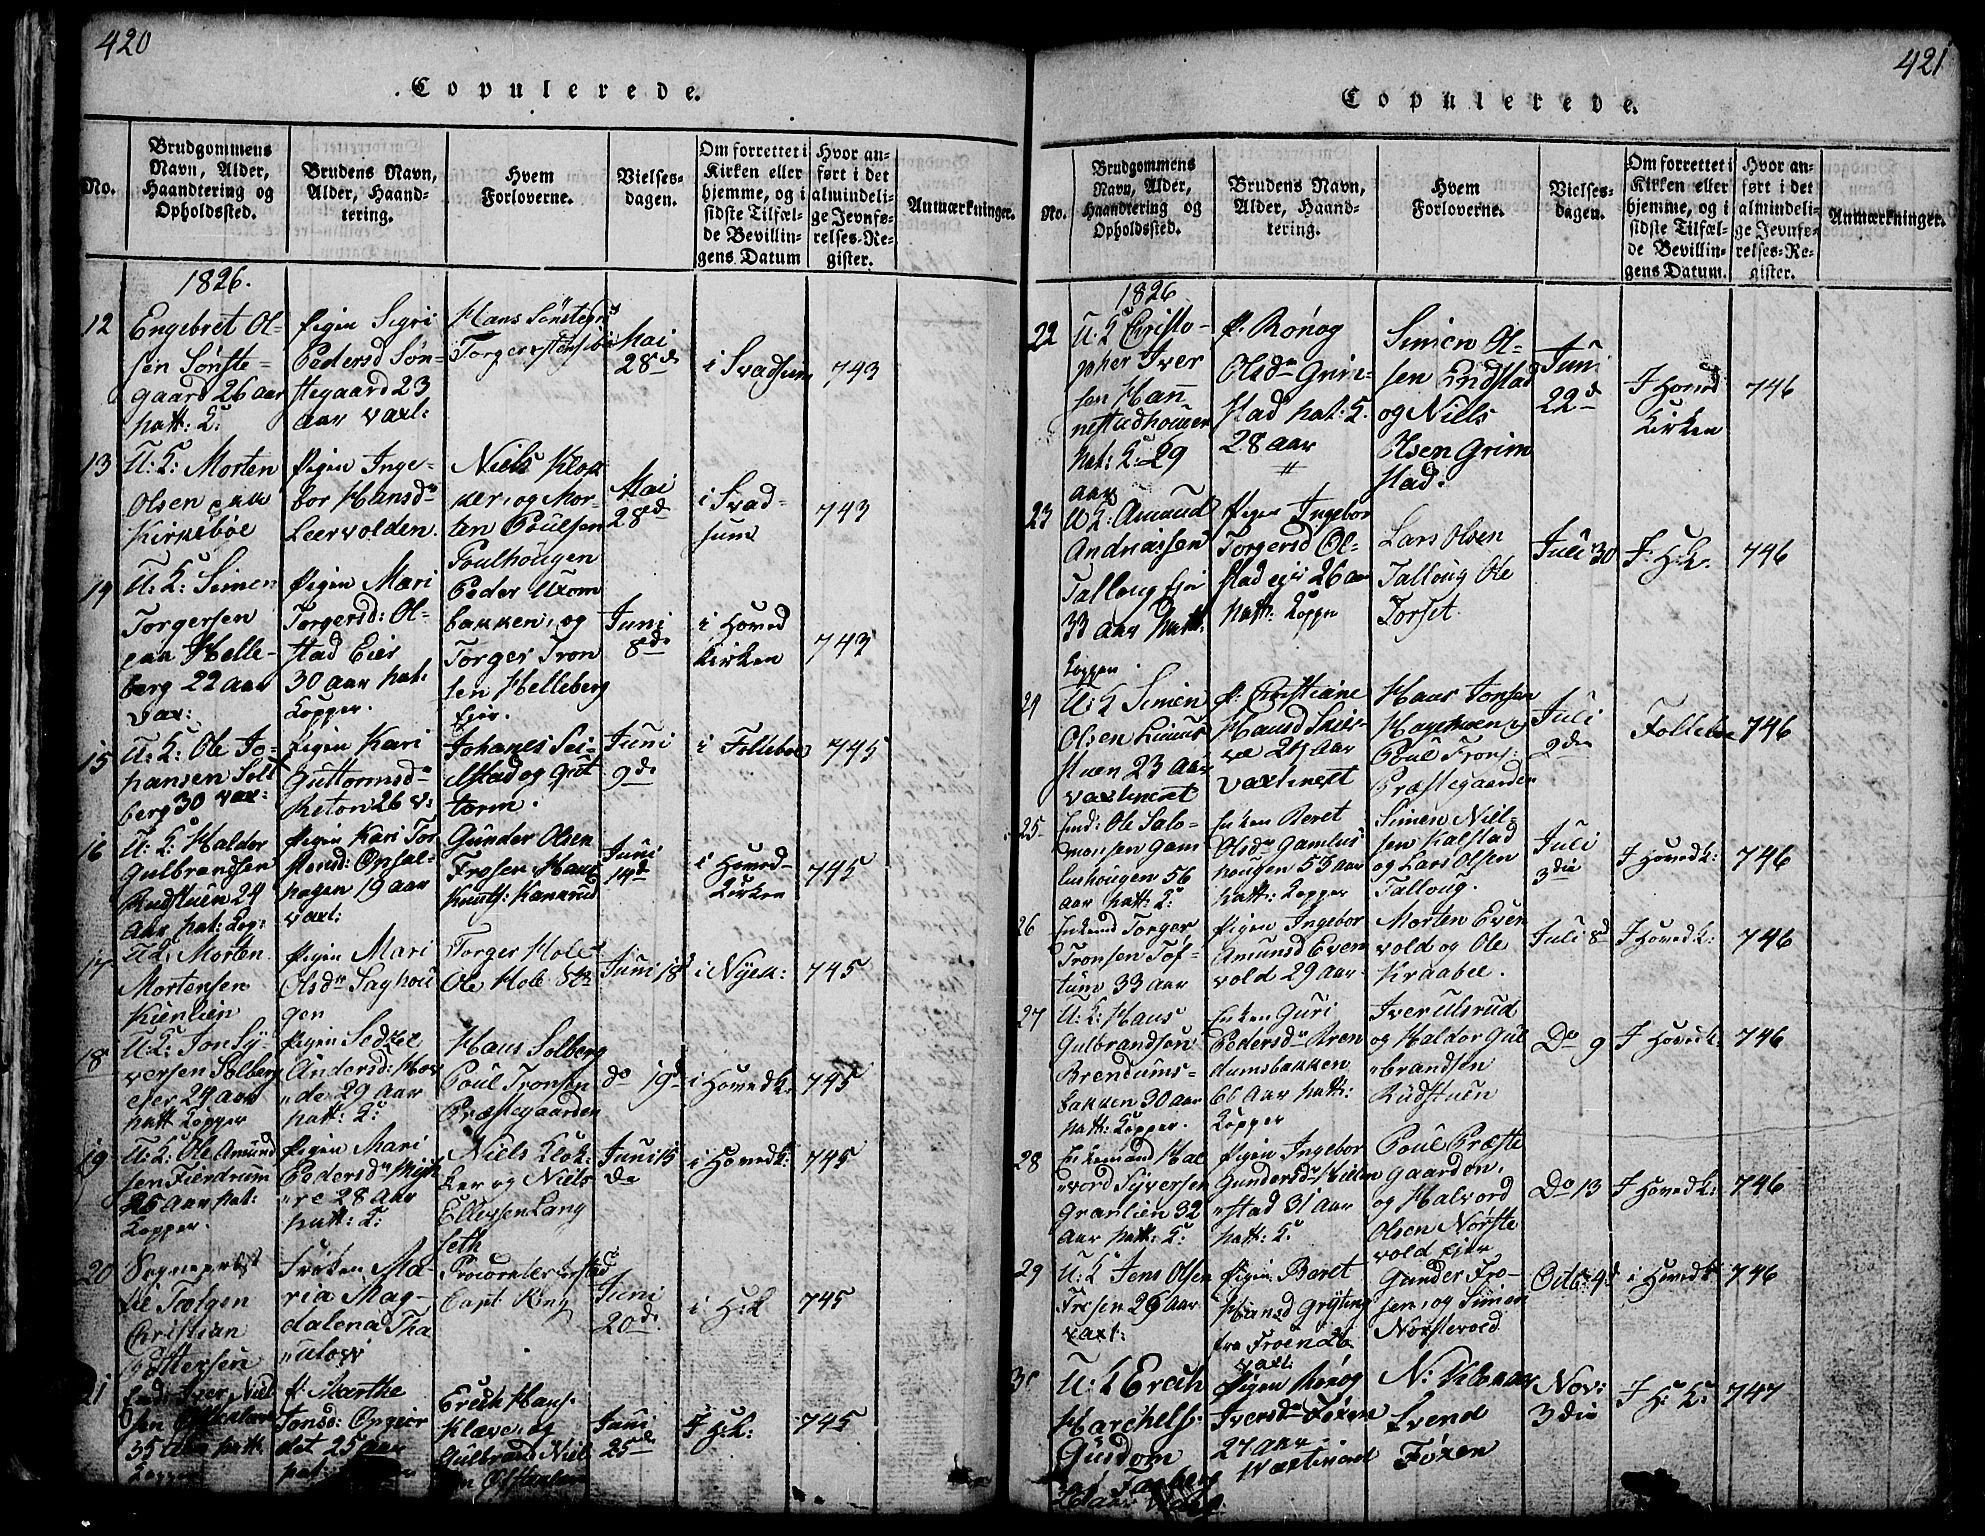 420
Copulerede.
No.
Brudgommens
Navn, Alder,
Haandtering og
Opholdssted.
Brudens Navn,
Alder, Haand-
tering.
Hvem
Forloverne.
Vielses-
dagen.
Om forrettet i
Kirken eller
hjemme, og i
sidste Tilfæl-
de Bevillin-
gens Datum
Hvor an-
ført i det
almindeli-
ge Jevnfø-
relses-Re-
gister.
Anmærkninger.
1826.
12
Engebret Ol-
sen Sønste-
gaard 26 aar
hatt: K:
Pigen Sigri
Pedersd Søn-
stegaard 23
aar vaxl:
Hans
Mai
28de
i Svadsum
743
13
U: K: Morten
Olsen
Kirkebøe
Pigen Inge-
bor Hansdr
Leervolden.
Niels Klok
ker, og Mor-
ten Poulsen
Poulhougen
Mai
28de
i Svad-
sum
743
14
U: K: Simen
Torgersen
paa Helle-
berg 22 aar
vax:
Pigen Mari
Torgersd: Ol-
stad Eier
30 aar hat:
Kopper.
Peder
bakken, og
Torger Tron
sen Helleberg
Eier.
Juni
8de
i Hoved
kirken
743
15
U: K: Ole Jo-
hansen Sol
berg 30 vax:
Pigen Kari
Guttormsdr
26 v:
Johanes
og Gut
torm.
Juni
9de
i Follebu
745
16
U: K: Haldor
Gulbrandsen
Rudstuen 24
aar hat: Kop:
Pigen Kari Tor
Opsal-
hagen 19 aar
vaxl:
Gunder Olsen
Frosen, Hans
Knuts:
Juni
14de
i Hoved-
kirken
745
17
U K Morten
Mortensen
Kienlien
Pigen Mari
Olsdr Saghou
gen
Torger Hole
Ole Hole
Juni 18d
i Nyek:
745
18
U: K: Jon Sy-
versen Solberg
eier 24 aar
hatt Kopper
Pigen Sedsel
Andersd: Hov
de 29 aar
hatt: K:
Hans Solberg
Poul Tronsen
Præstegaarden
do 19d
i Hovedk.
745
19
U: K: Ole Amund
sen Fierdrum
25 aar hat:
Kopper.
Pigen Mari
Pedersdr
re 28 aar
hatt: K:
Niels Klok-
ker og Niels
Ellefsen Lang
seth
Juni 15
de
i Hovedk:
745
20
Sogneprest
Christian
Frøken Ma-
ria Mag-
dalena Tha
ulow
Capt King
Juni
20de
i H:k
745
21
Enk: Iver Niel
sen
35 aar hatt.
Kopper
P. Marthe
Jonsd:
det 25 aar
hat:
Erich Hans.
Klæve, og
Gulbrand Niel
sen
Juni
25de
I H:k:
745
421
Copulerede.
No.
Brudgommens
Navn, Alder,
Haandtering og
Opholdssted.
Brudens Navn,
Alder, Haand-
tering.
Hvem
Forloverne.
Vielses-
dagen.
Om forrettet i
Kirken eller
hjemme, og i
sidste Tilfæl-
de Bevillin-
gens Datum.
Hvor an-
ført i det
almindeli-
ge Jevnfø-
relses-Re-
gister.
Anmærkninger.
1826
22
U: K Christo-
pher Iver
sen Han
nestadhouen
hat: K: 29
aar
P. Rønog
Olsdr Grim-
stad hat: K.
28 aar
Simen Ol-
sen Endstad
og Niels
Olsen Grim
stad.
Juni
22d
I Hoved
Kirken
746
23
U K: Amund
Andriassen
Talloug Eier
33 aar hatt:
Koppen.
Pigen Ingebor
Torgersd Ol-
stad eier 26 aar
hatt: Kopper
Lars Olsen
Talloug Ole
Torset.
Juli 30
I: H:k.
746
24
U: K Simen
Olsen
stuen 23 aar
vaxlineret
P. Christiane
Hansd
24 aar
vaxlineret
Hans Jonsen
Poul Trons:
Præstegaarden
Juli
2de
Follebu
746
25
Enk: Ole Salo-
monsen Gam
lushougen 56
aar hatt: K:
Enken Beret
Olsdr Gamlus
hougen 53 aar
hatt: Kopper
Simen Niel-
sen Kalstad
og Lars Olsen
Talloug.
Juli
3die
I Hovedk:
746
26
Enkemd Torger
Tronsen Tof-
tum 33 aar
Pigen Ingebor
Amunsd Even
vold 29 aar
Morten Even
vold og Ole
Kraabøl.
Juli 8d
I Hovedk:
746
27
U: K: Hans
Gulbrandsen
Brendums-
bakken 30 aar
hatt: Kopper.
Enken Guri
Pedersdr Bren
dumsbakken
66 aar hatt:
Kopper
Iver Ulsrud
og Haldor Gul
brandsen
Rudstuen
Do 9
I Hovedk.
746
28
Enkemand Hal
vord Syversen
Granlien 32
aar hatt: K:
Pigen Ingebor
Gundersdr
stad 31 aar
hatt: K:
Poul Præste
gaarden,
og Halvord
Olsen Nørste
vold Eier
Do 13
I Hovedk:
746
29
U: K Jens Olsen
Frosen 26 aar
vaxl:
Pigen Beret
Hansd Gryting
fra Froen 26
vaxl
Gunder Fro-
sen, og Simen
Nørstevold
Octb: 4d
i Hovedk
746
30
U: K Erich
Gusdom
Pigen Rønog
Iversdr Foxen
27 aar
Vaxlinered
N: Klokker
Svend
Foxen
Nov:
3die
I H: K:
747